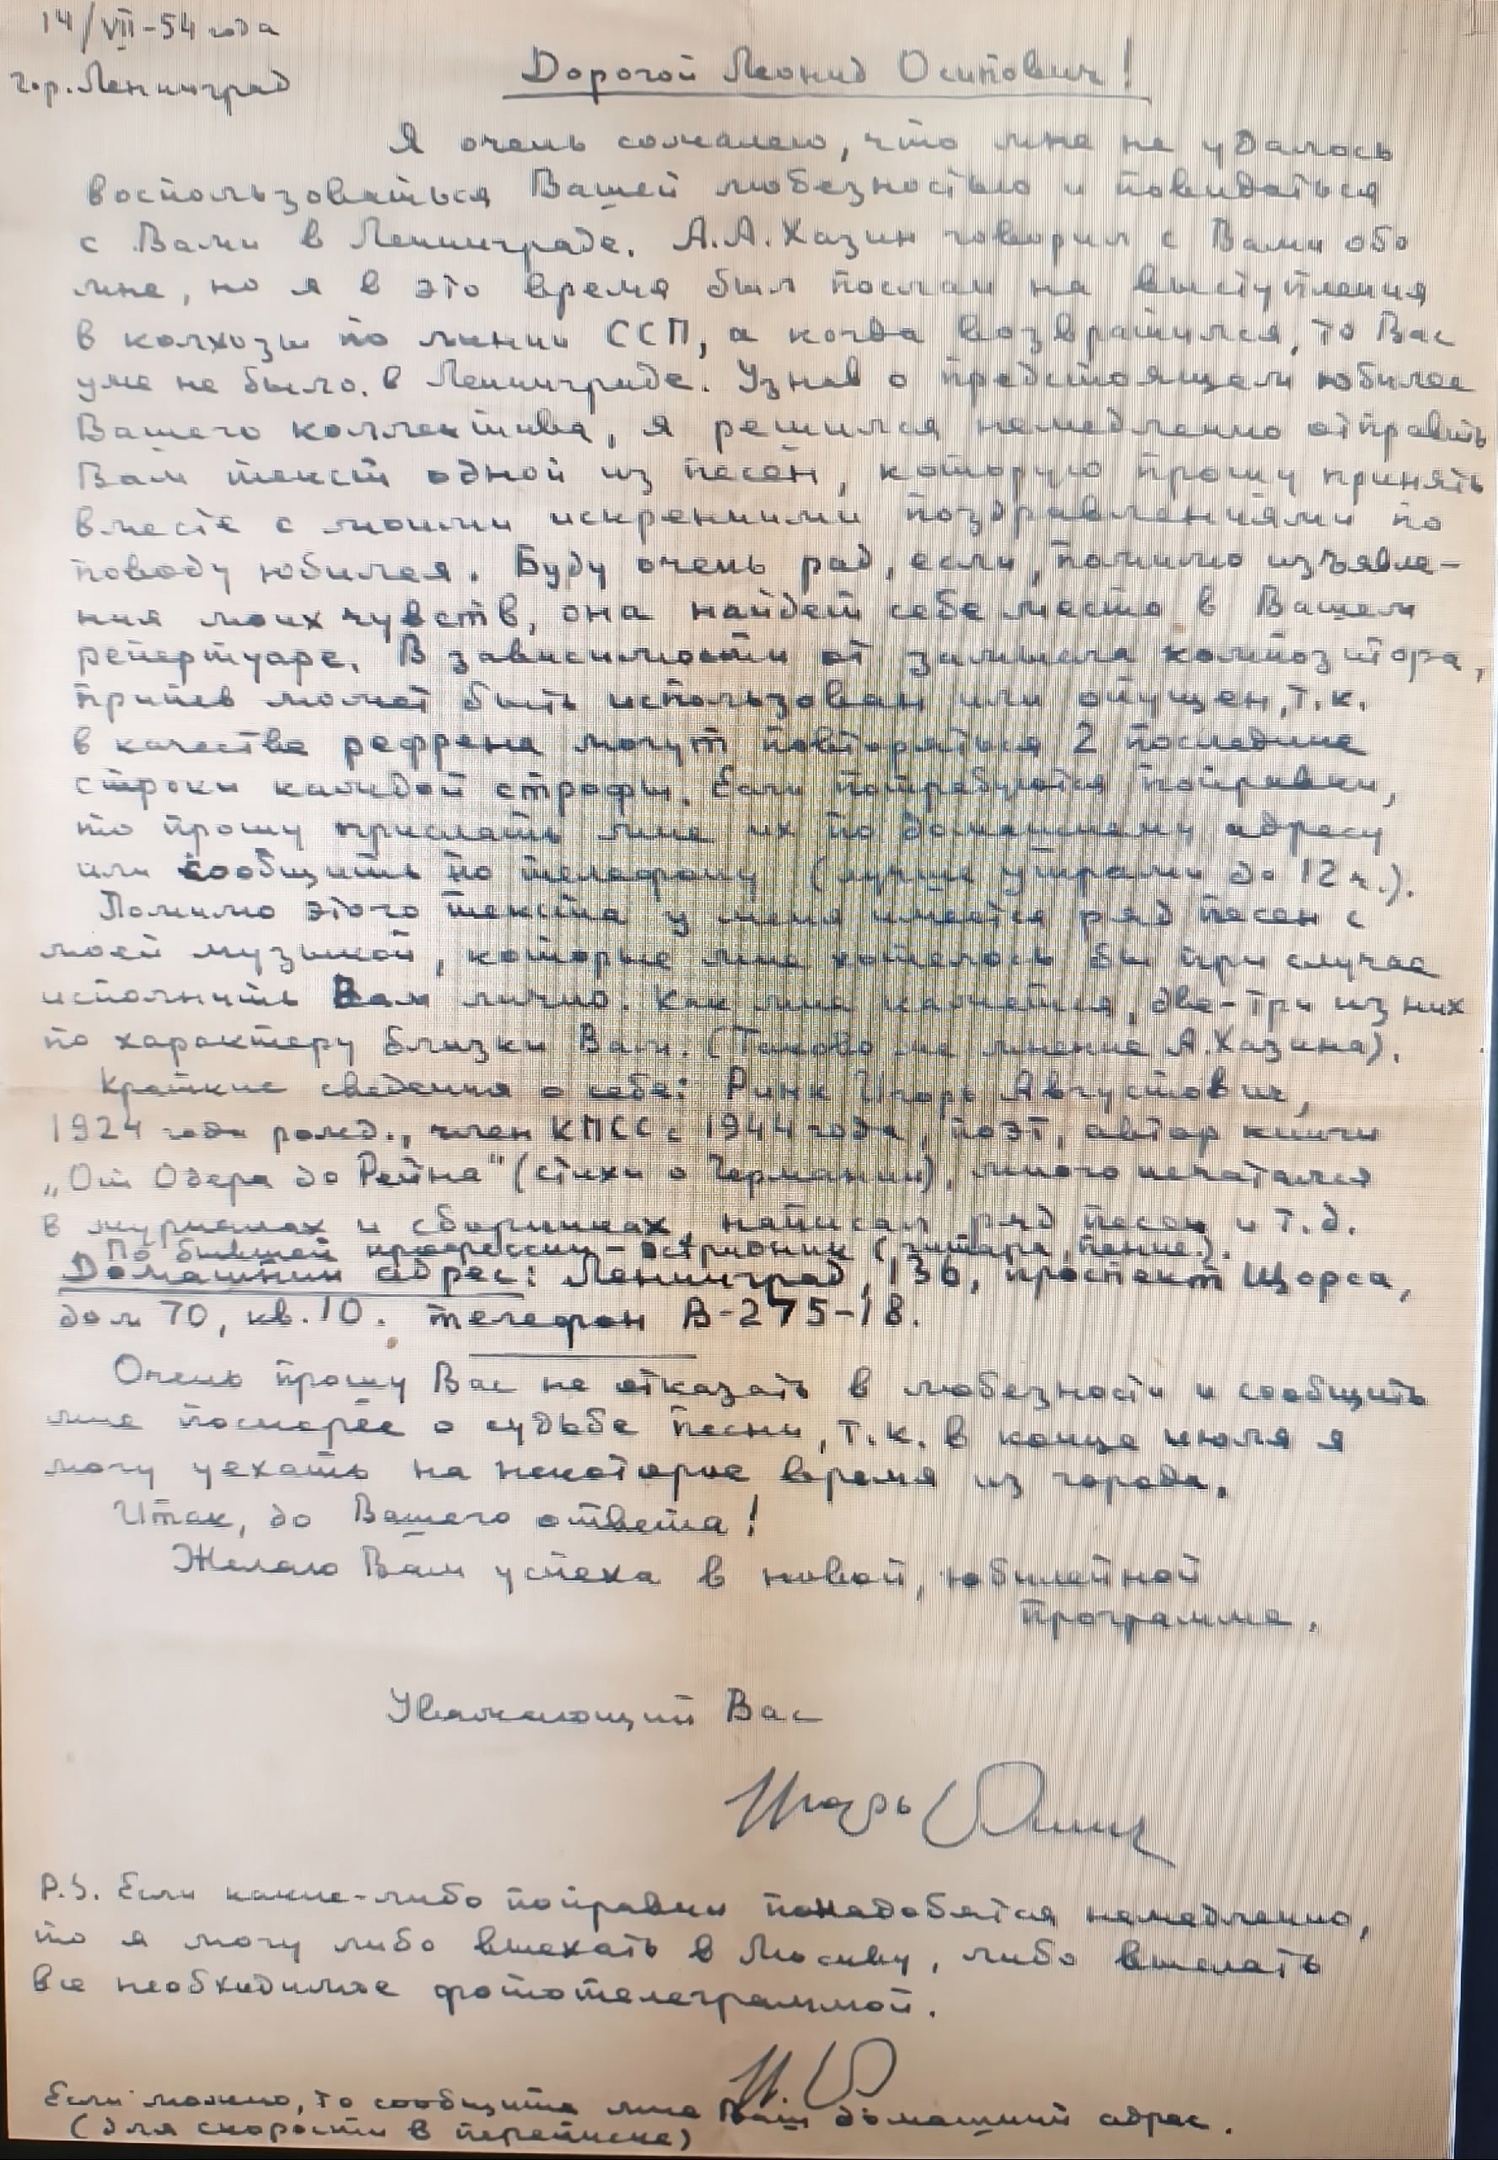 14/VII-54 года
гор. Ленинград
Дорогой Леонид Осипович!
Я очень сожалею, что мне не удалось
воспользоваться Вашей любезностью и повидаться
с Вами в Ленинграде. А.А. Хазин говорил с Вами обо
мне, но я в это время был послан на выступления
в колхозы по линии ССП, а когда возвратился, то Вас
уже не было в Ленинграде. Узнав о предстоящем юбилее
Вашего коллектива, я решился немедленно отправить
Вам текст одной из песен, которую прошу принять
вместе с моими искренними поздравлениями по
поводу юбилея. Буду очень рад, если, помимо изъявле-
ния моих чувств, она найдет себе место в Вашем
репертуаре. В зависимости от замысла композитора,
припев может быть использован или опущен, т.к.
в качестве рефрена могут повторяться 2 последние
строки каждой строфы. Если потребуются поправки,
то прошу прислать мне их по домашнему адресу
или сообщить по телефону (лучше утрами до 12 ч.).
Помимо этого текста у меня имеется ряд песен с
моей музыкой, которые мне хотелось бы при случае
исполнить Вам лично. Как мне кажется, две-три из них
по характеру близки Вам. (Таково же мнение А. Хазина).
Краткие сведения о себе: Ринк Игорь Августович,
1924 года рожд., член КПСС с 1944 года, поэт, автор книги
„От Одера до Рейна" (стихи о Германии), много печатался
в журналах и сборниках, написал ряд песен и т.д.
По бывшей профессии - эстрадник (гитара, пение).
Домашний адрес: Ленинград, 136, проспект Щорса,
дом 70, кв. 10. телефон В-275-18.
Очень прошу Вас не отказать в любезности и сообщить
мне поскорее о судьбе песни, т.к. в конце июля я
могу уехать на некоторое время из города.
Итак, до Вашего ответа!
Желаю Вам успеха в новой, юбилейной
программе.
Уважающий Вас
Игорь Ринк
P.S. Если какие-либо поправки понадобятся немедленно,
то я могу либо выехать в Москву, либо выслать
все необходимое фототелеграммой.
И. Р
Если можно, то сообщите мне Ваш домашний адрес.
(для скорости в переписке)